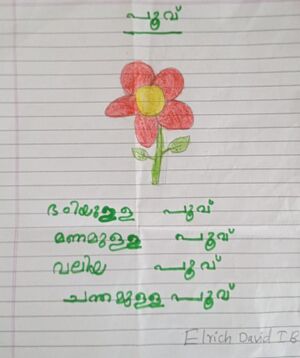 പൂവ്
ഭംഗിയുള്ള പൂവ്
മണമുള്ള പൂവ്
വലിയ പൂവ്
ചന്തമുള്ള പൂവ്
Elrich David T